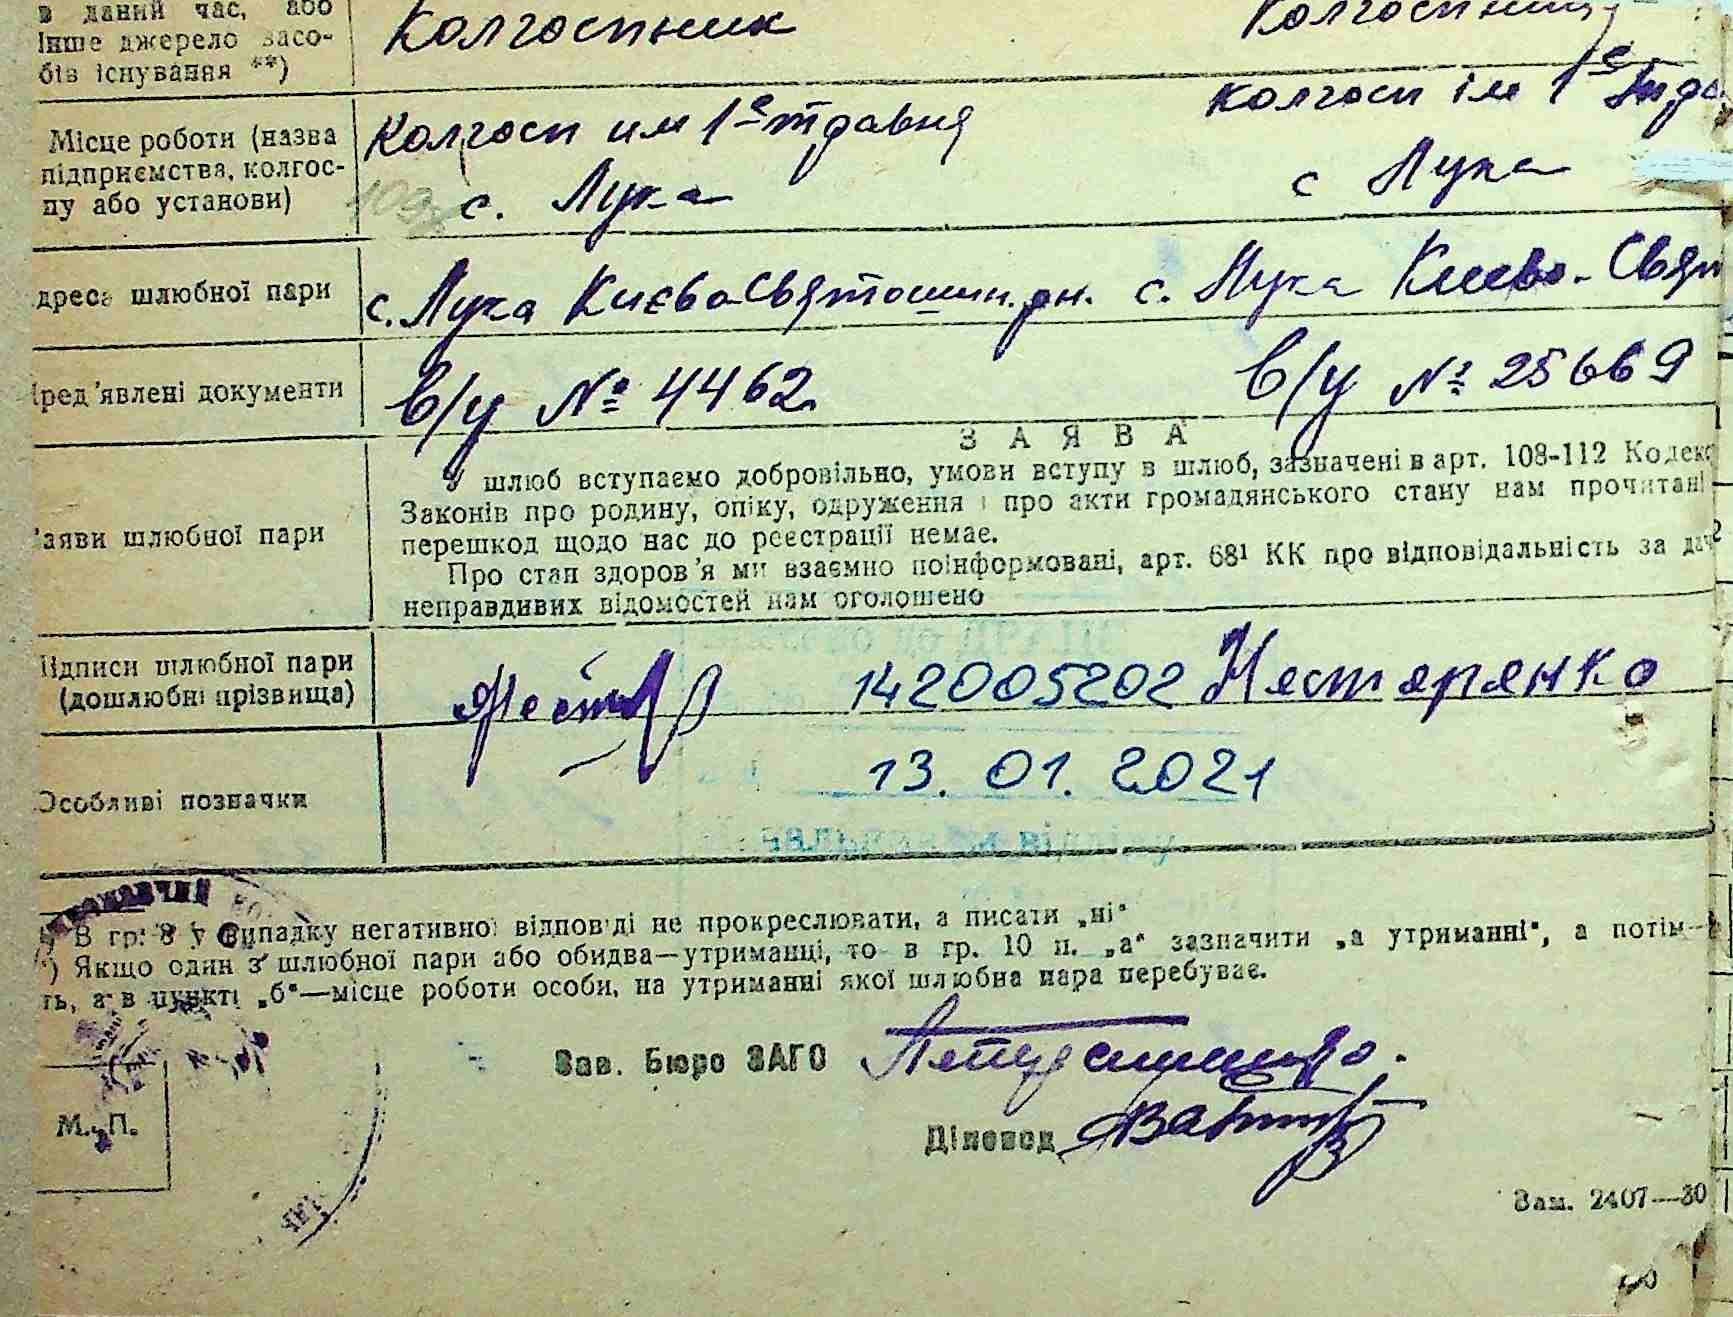 в даний час, або
Інше джерело засо-
бів існування **)
Колгоспник
Колгоспниця
Місце роботи (назва
підприємства, колгос-
пу або установи)
Колгосп им 1е травня
с. Лука
Колгосп ім 1е
с Лука
дреса шлюбної пари
с. Лука Києво Святошин. рн.
с. Лука Києво-Свят
ред'явлені документи
в/у № 4462
в/у № 25669
ЗАЯВА
У шлюб вступаємо добровільно, умови вступу в шлюб, зазначені в арт. 108-112 Кодекс
Законів про родину, опіку, одруження і про акти громадянського стану нам прочитані
перешкод щодо нас до реєстрації немає.
Про стан здоров'я ми взаємно поінформовані, арт. 68¹ КК про відповідальність за дач
неправдивих відомостей нам оголошено
аяви шлюбної пари
ідписи шлюбної пари
(дошлюбні прізвища)
142005202 Нестяренко
Особливі позначки
13. 01. 2021
*) В гр. 8 у випадку негативної відповіді не прокреслювати, а писати „ні"
*) Якщо один з шлюбної пари або обидва—утриманці, то в гр. 10 п. „а" зазначити „а утриманні", а потім
ть, а в пункті „б"—місце роботи особи, на утриманні якої шлюбна пара перебуває.
Зав. Бюро ЗАГС
Діловод
М. П.
Зам. 2407—30